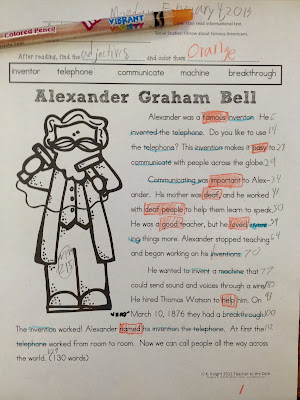 Colored Pencil
VIBRANT
February 4, 2013
can read informational text.
Social Studies: I know about famous Americans.
After reading, find the adjectives and color them Orange
inventor telephone communicate machine breakthrough
Alexander Graham Bell
Alexander was a famous inventor. He 6
invented the telephone. Do you like to use 14
the telephone? This invention makes it easy to 23
communicate with people across the globe. 29
Communicating was important to Alex- 34
ander. His mother was deaf, and he worked 41
with deaf people to help them learn to speak. 50
He was a good teacher, but he loved
ing things more. Alexander stopped teaching 64
and began working on his inventions. 70
He wanted to invent a machine that 77
could send sound and voices through a wire.
He hired Thomas Watson to help him. On
March 10, 1876 they had a breakthrough! 100
The invention worked! Alexander named his invention the telephone. At first the 112
telephone worked from room to room. Now we can call people all the way across
the world. (130 words)
© K. Knight 2012 Teacher to the Core
1